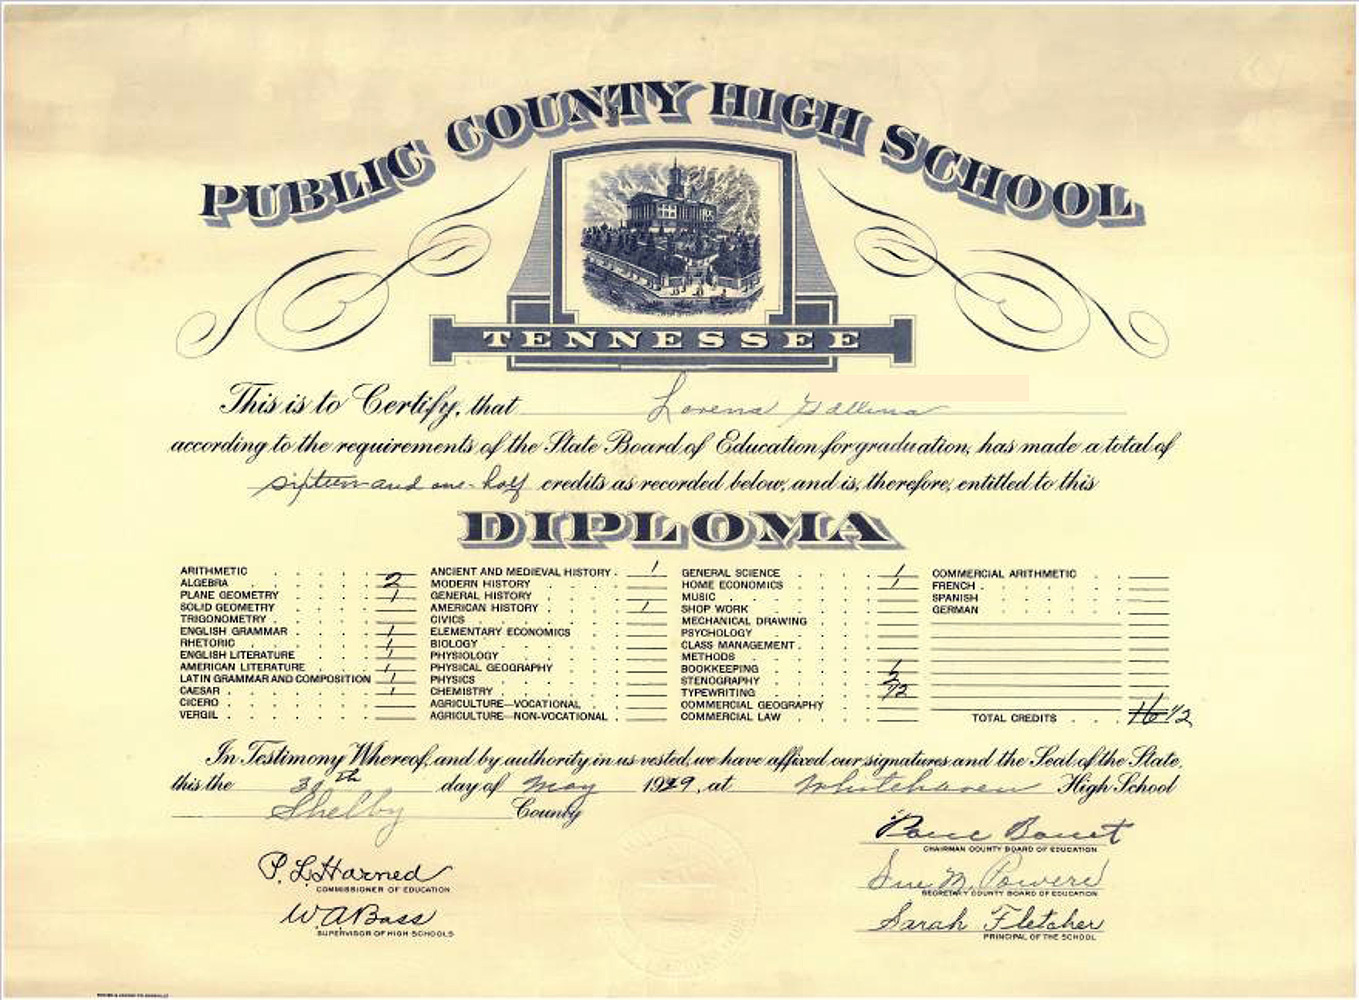 PUBLIC COUNTY HIGH SCHOOL
TENNESSEE
This is to Certify, that Lorena Gallina
according to the requirements of the State Board of Education for graduation, has made a total of
sixteen and one-half credits as recorded below, and is, therefore, entitled to this
DIPLOMA
ARITHMETIC
ALGEBRA 2
PLANE GEOMETRY 1
SOLID GEOMETRY
TRIGONOMETRY
ENGLISH GRAMMAR 1
RHETORIC 1
ENGLISH LITERATURE 1
AMERICAN LITERATURE 1
LATIN GRAMMAR AND COMPOSITION 1
CAESAR 1
CICERO
VERGIL
ANCIENT AND MEDIEVAL HISTORY 1
MODERN HISTORY
GENERAL HISTORY
AMERICAN HISTORY 1
CIVICS
ELEMENTARY ECONOMICS
BIOLOGY
PHYSIOLOGY
PHYSICAL GEOGRAPHY
PHYSICS
CHEMISTRY
AGRICULTURE—VOCATIONAL
AGRICULTURE—NON-VOCATIONAL
GENERAL SCIENCE 1
HOME ECONOMICS 1
MUSIC
SHOP WORK
MECHANICAL DRAWING
PSYCHOLOGY
CLASS MANAGEMENT
METHODS
BOOKKEEPING 1
STENOGRAPHY
TYPEWRITING 1/2
COMMERCIAL GEOGRAPHY
COMMERCIAL LAW
COMMERCIAL ARITHMETIC
FRENCH
SPANISH
GERMAN
TOTAL CREDITS 16 1/2
In Testimony Whereof, and by authority in us vested, we have affixed our signatures and the Seal of the State,
this the 30th day of May 1929, at Whitehaven High School
Shelby County
P. L. Harned
COMMISSIONER OF EDUCATION
W A Bass
SUPERVISOR OF HIGH SCHOOLS
CHAIRMAN COUNTY BOARD OF EDUCATION
Sue M. Powers
SECRETARY COUNTY BOARD OF EDUCATION
Sarah Fletcher
PRINCIPAL OF THE SCHOOL